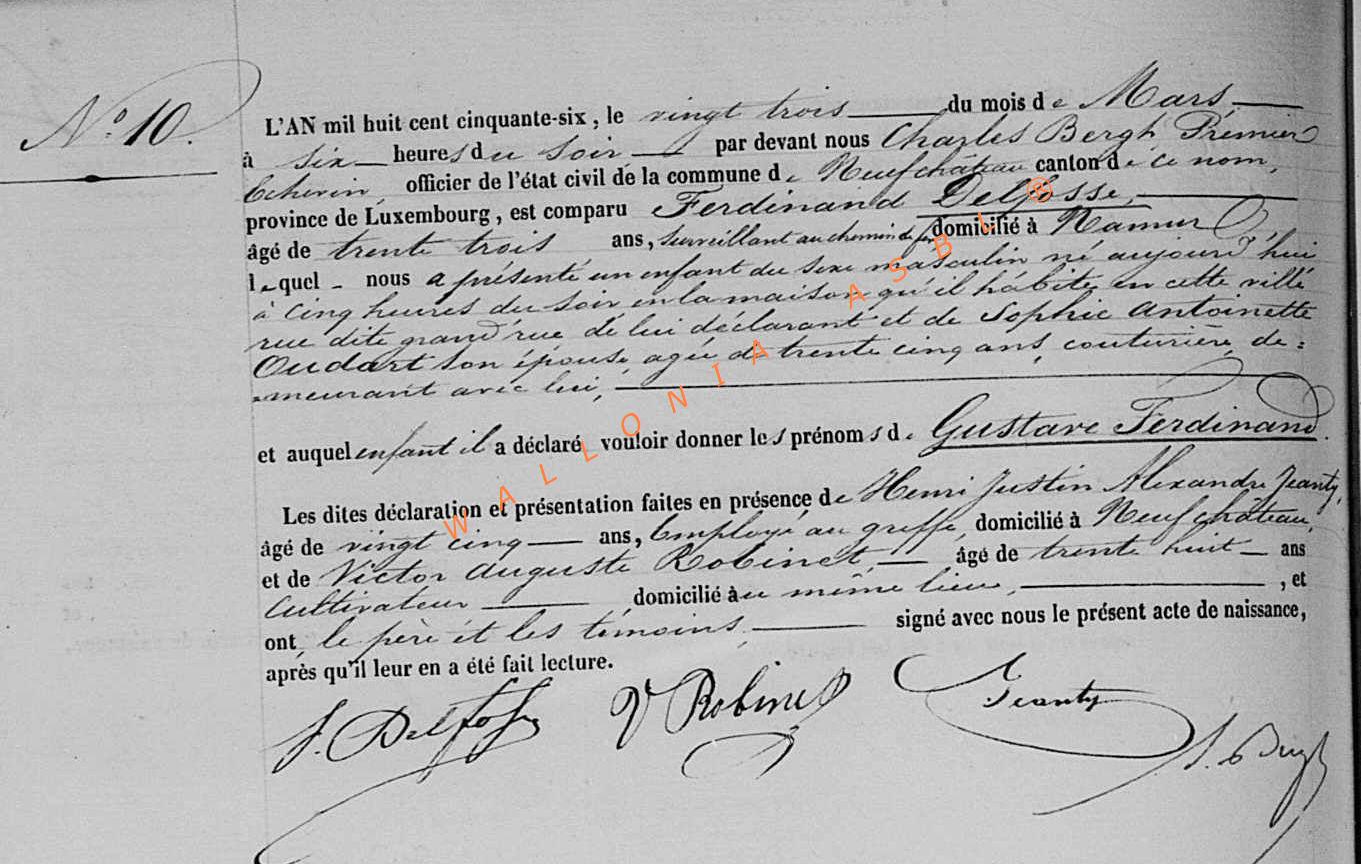 N.o 10.
L'AN mil huit cent cinquante-six, le vingt trois du mois de Mars
à six heures du soir par devant nous Charles Bergh Prémier
Echevin, officier de l'état civil de la commune de Neufchâteau canton de ce nom,
province de Luxembourg, est comparu Ferdinand Delfosse,
âgé de trente trois ans, surveillant au chemin de fer domicilié à Namur
lequel nous a présenté un enfant du sexe masculin né aujourd'hui
à cinq heures du soir en la maison qu'il habite en cette ville
rue dite grand'rue de lui déclarant et de Sophie Antoinette
Oudart son épouse, agée de trente cinq ans, couturière, de=
=meurant avec lui,
et auquel enfant il a déclaré vouloir donner les prénoms de Gustave Ferdinand.
Les dites déclaration et présentation faites en présence de Henri Justin Alexandre Jeanty,
âgé de vingt cinq ans, Employé au greffe, domicilié à Neufchâteau,
et de Victor Auguste Robinet, âgé de trente huit ans
Cultivateur domicilié au même lieu, , et
ont le père et les témoins, signé avec nous le présent acte de naissance,
après qu'il leur en a été fait lecture.
f. Delfosse V Robinet Jeanty
WALLONIA ASBL ®